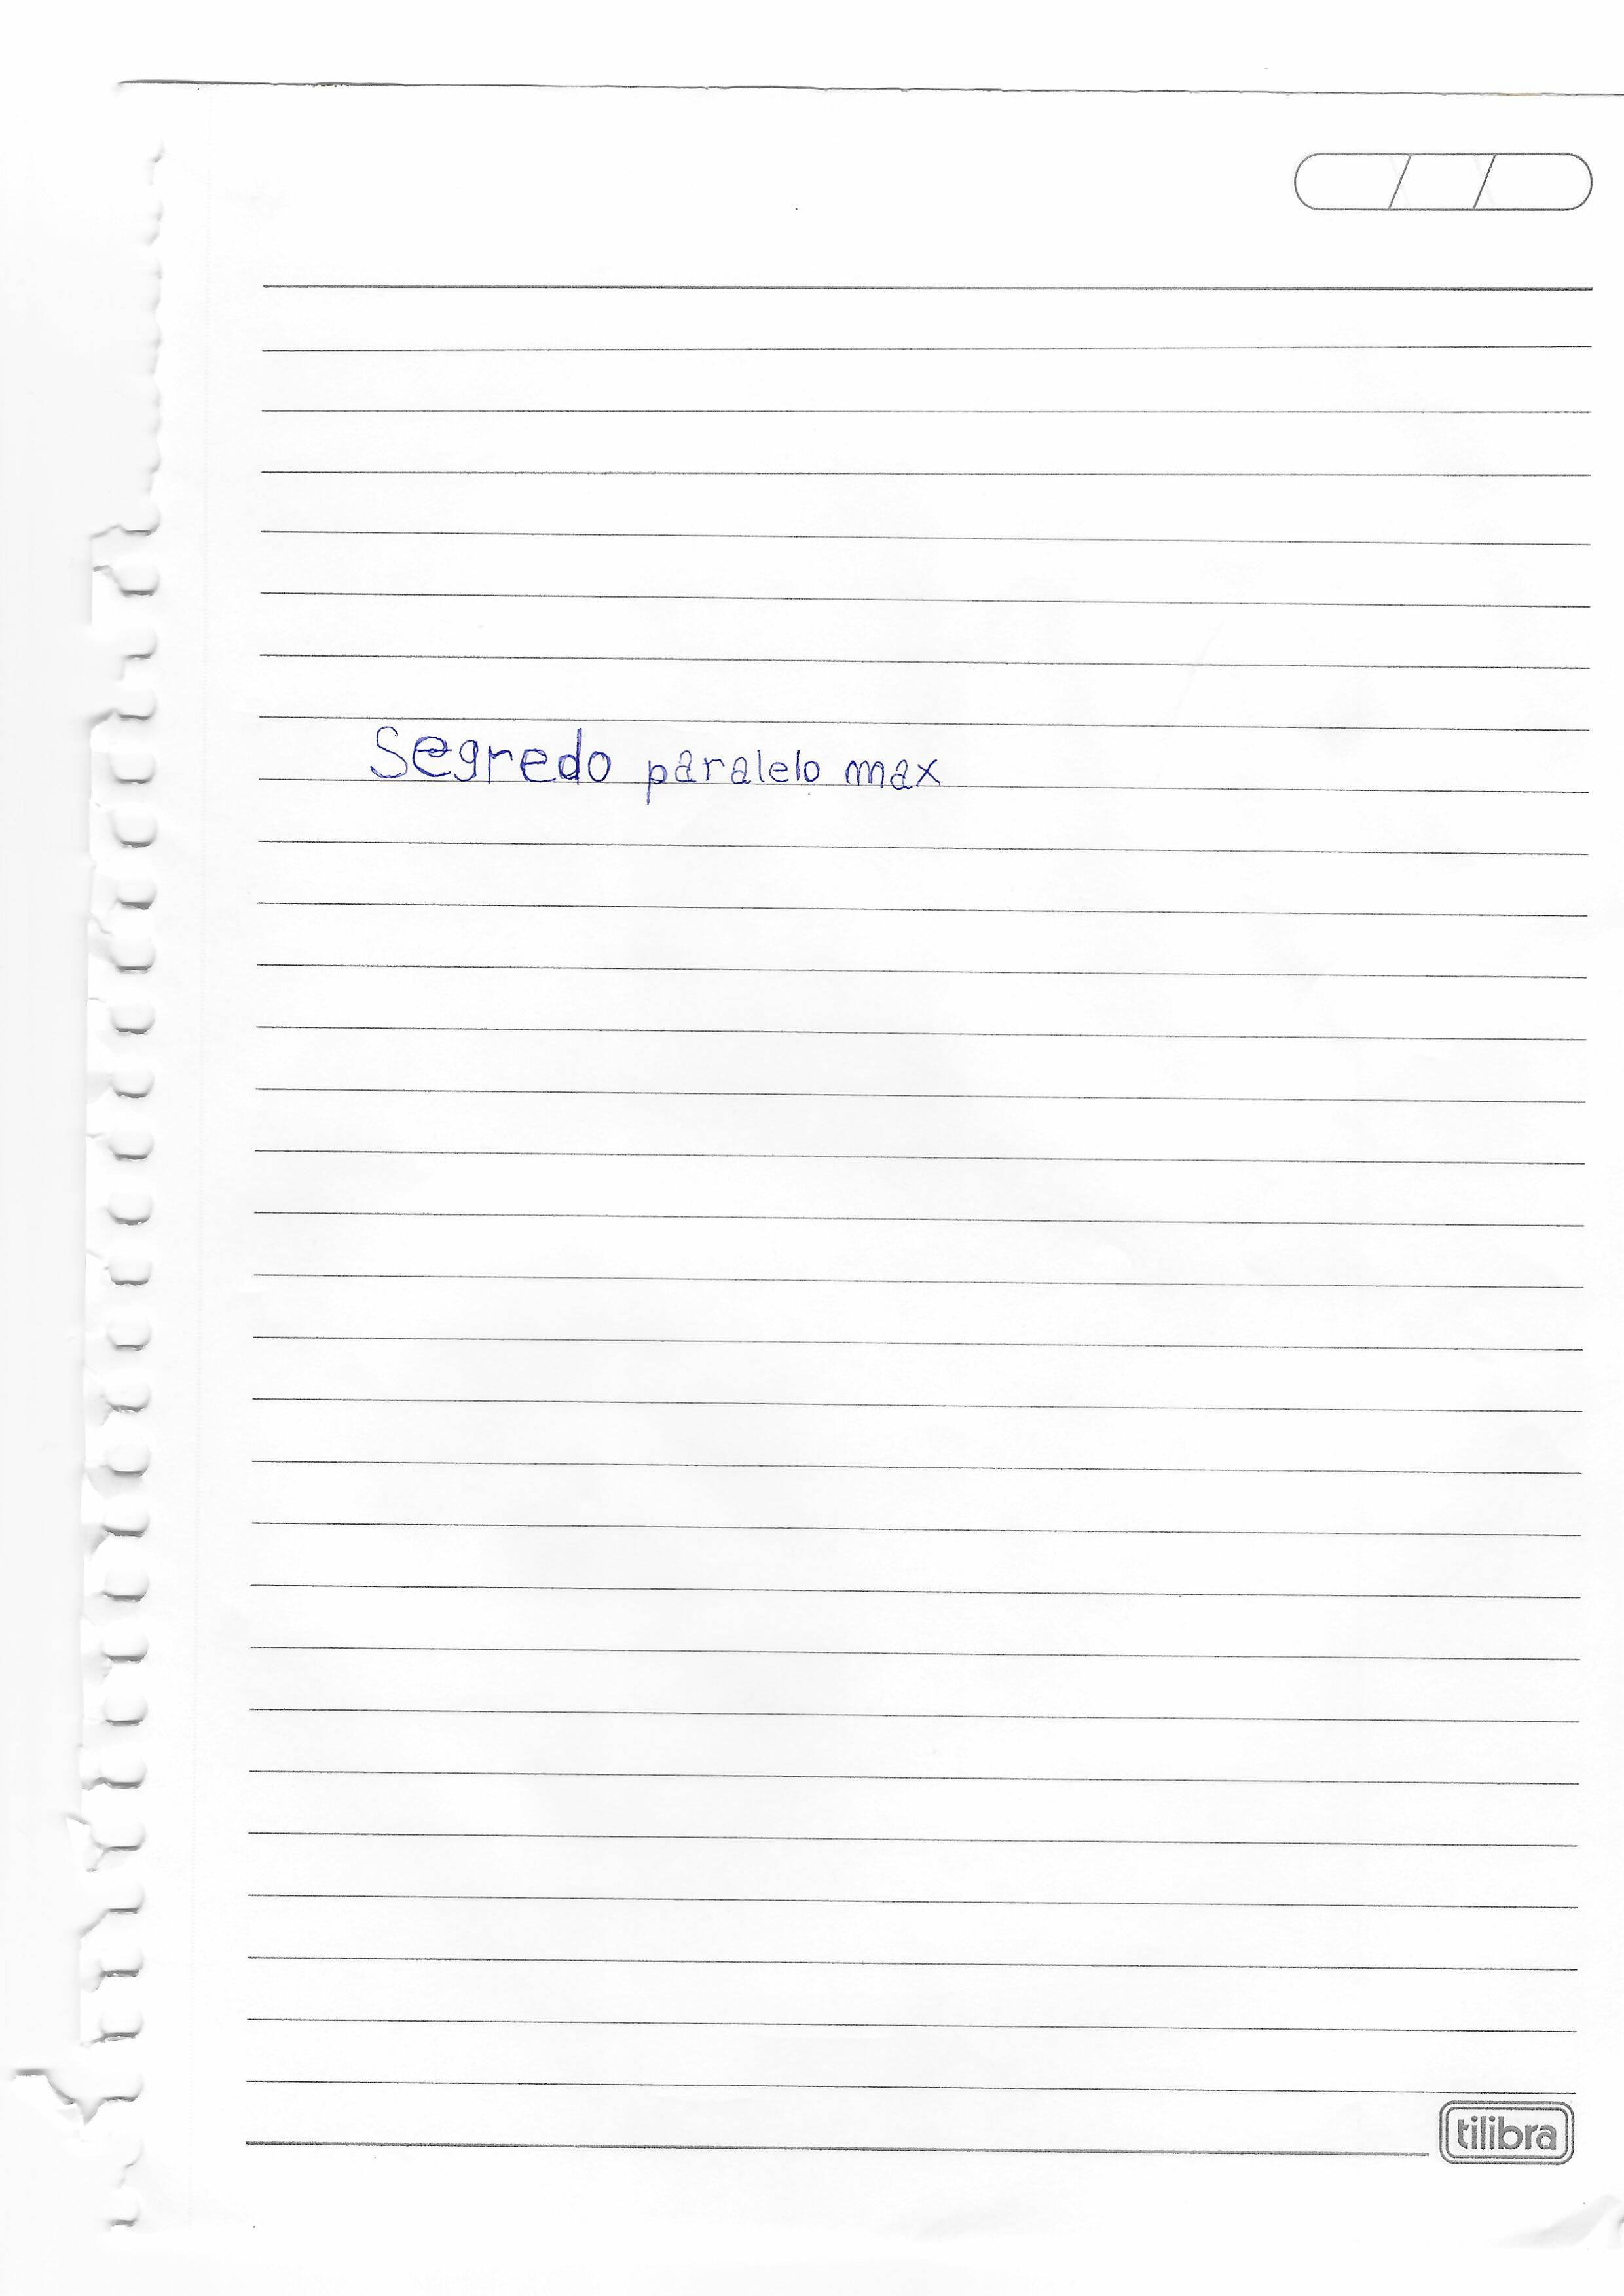 Segredo paralelo max
tilibra